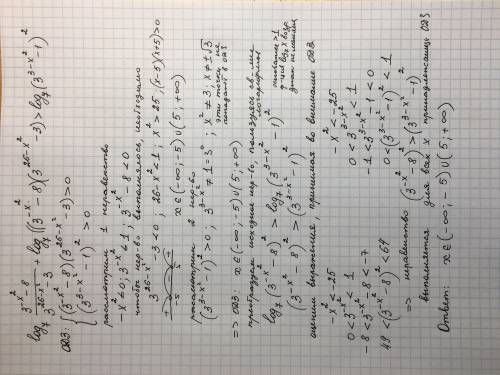 log₇ (3^(-x²) - 8)/(3^(26-x²) - 3) + log₇((3^(-x²) - 8)(3^(26-x²) - 3)) > log₇(3^(3-x²) - 1)²
ОДЗ: { (3^(-x²) - 8)(3^(26-x²) - 3) > 0
(3^(3-x²) - 1)² > 0
рассмотрим 1 неравенство
-x² ≤ 0; 3^(-x²) ≤ 1; 3^(-x²) - 8 < 0
чтобы нер-во выполнялось, необходимо
3^(26-x²) - 3 < 0; 26 - x² < 1; x² > 25; (x-5)(x+5) > 0
+ - +
-5 5
x ∈ (-∞; -5) ∪ (5; +∞)
рассмотрим 2 нер-во
(3^(3-x²) - 1)² > 0; 3^(3-x²) ≠ 1 = 3⁰; x² ≠ 3; x ≠ ±√3
эти точки не попадают в ОДЗ
=> ОДЗ: x ∈ (-∞; -5) ∪ (5; +∞)
преобразуем исходное нер-во, пользуясь св-ми логарифмов
log₇(3^(-x²) - 8)² > log₇(3^(3-x²) - 1)²
основание >1
ф-ция log₇ x возр.
знак не меняем
(3^(-x²) - 8)² > (3^(3-x²) - 1)²
оценим выражения, принимая во внимание ОДЗ
-x² < -25 -x² < -25
0 < 3^(-x²) < 1 0 < 3^(3-x²) < 1
-8 < 3^(-x²) - 8 < -7 -1 < 3^(3-x²) - 1 < 0
49 < (3^(-x²) - 8)² < 64 0 < (3^(3-x²) - 1)² < 1
=> неравенство (3^(-x²) - 8)² > (3^(3-x²) - 1)²
выполняется для всех x принадлежащих ОДЗ
Ответ: x ∈ (-∞; -5) ∪ (5; +∞)